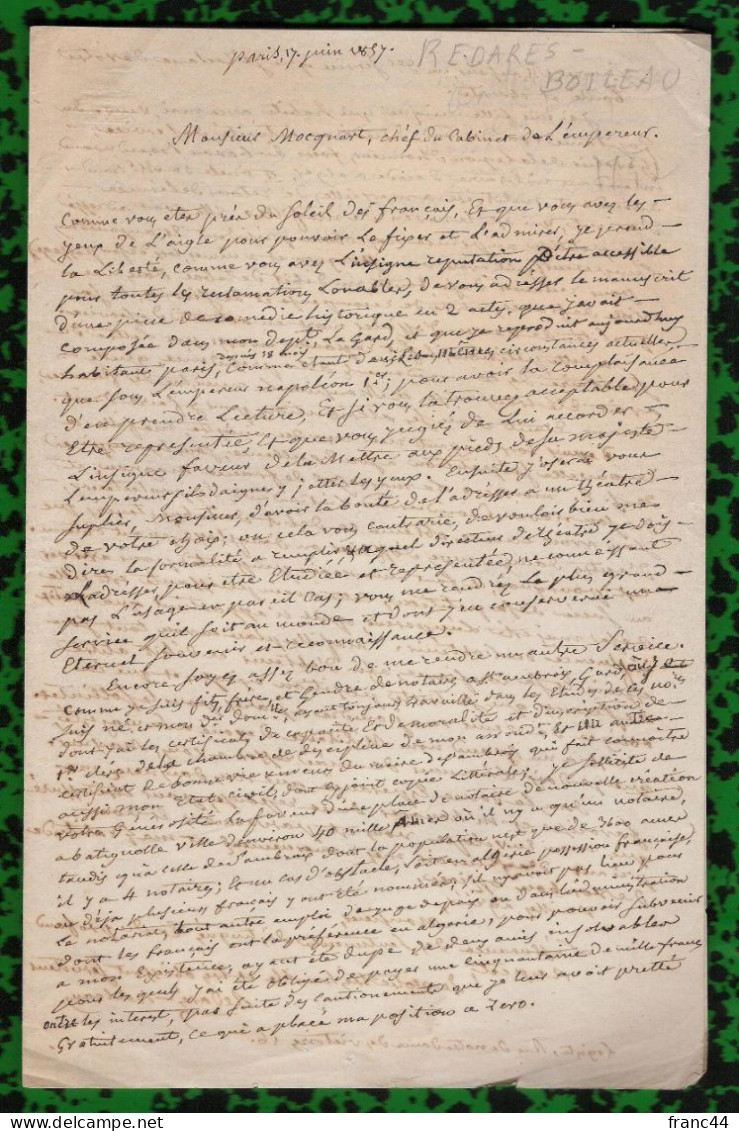 Paris, 17. juin 1857.
REDARES -
BOILEAU
Monsieur Mocquart, chéf du Cabinet de L'empereur.
Comme vous etes prés du Soleil des français, Et que vous avez les
yeux de L'aigle pour pouvoir Le fixer et L'admirer, je prend
la Liberté, comme vous avez L'insigne reputation d'être accessible
pour toutes les reclamations Louables, de vous adresser le manuscrit
d'une piece de comédie historique en 2 actes, que j'avait
composée dans mon dept. Le Gard, et que je reproduit aujourdhuy
habitant paris, depuis 18 mois, comme étant des mêmes circonstances actuelles
que sous L'empereur napoléon 1er; pour avoir la complaisance
d'en prendre Lecture, Et si vous la trouvez acceptable pour
Etre representée, Et que vous jugiés de Lui accorder
L'insigne faveur de la Mettre aux pieds de Sa majesté
L'empereur s'il daigne y jetter les yeux. Ensuite j'oserai vous
suplier, Monsieur, d'avoir la bonté de l'adresser a un théatre
de votre choix; ou cela vous contrarie, de vouloir bien me
dire la formalité a remplir, a quel directeur de théatre je dois
L'adresser, pour etre Etudiée et representée, ne conaissant
pas L'usage en pareil Cas; vous me rendrez Le plus grand
service qu'il soit au monde et dont j'en conserverai un
Eternel souvenir et reconnaissance.
Encore soyez assez bon de me rendre un autre Service.
Comme je suis fils, frère, et Gendre de notaire a St ambroix, Gard, où je
suis né, et mon dr. dom.lle, ayant toujours travaillé dans les Etudes de ces no.res
dont j'ai les certificats de capacité Et de moralité et d'inscription de
1er clerc de la chambre de discipline de mon arrondt. Et un autre
certificat de bonne vie et mœurs du maire de St ambroix qui fait connaitre
aussi mon Etat civil, dont cy joint copie Littérale; Je sollicite de
votre Générosité La faveur d'une place de notaire de nouvelle création
a batignolle ville d'environ 40 mille Ames où il n'y a qu'un notaire,
tandis qu'a celle de St ambroix dont la population n'est que de 3600 ames
il y a 4 notaires; Et en cas d'obstacle, soit en algérie possession française,
ou déja plusieurs français y ont été nommés; s'il n'y avoit pas lieu pour
Le notariat, tout autre emploi de juge de paix ou dans l'administration
dont les français ont la préférence en algérie, pour pouvoir subvenir
a mon Existence, ayant été dupe de deux amis insolvables
pour les quels j'ai été obligé de payer une cinquantaine de mille francs
outre les interest, par suite des cautionements que je leur avoit pretté
Gratuitement, ce qui a placé ma position a Zero.
franc44